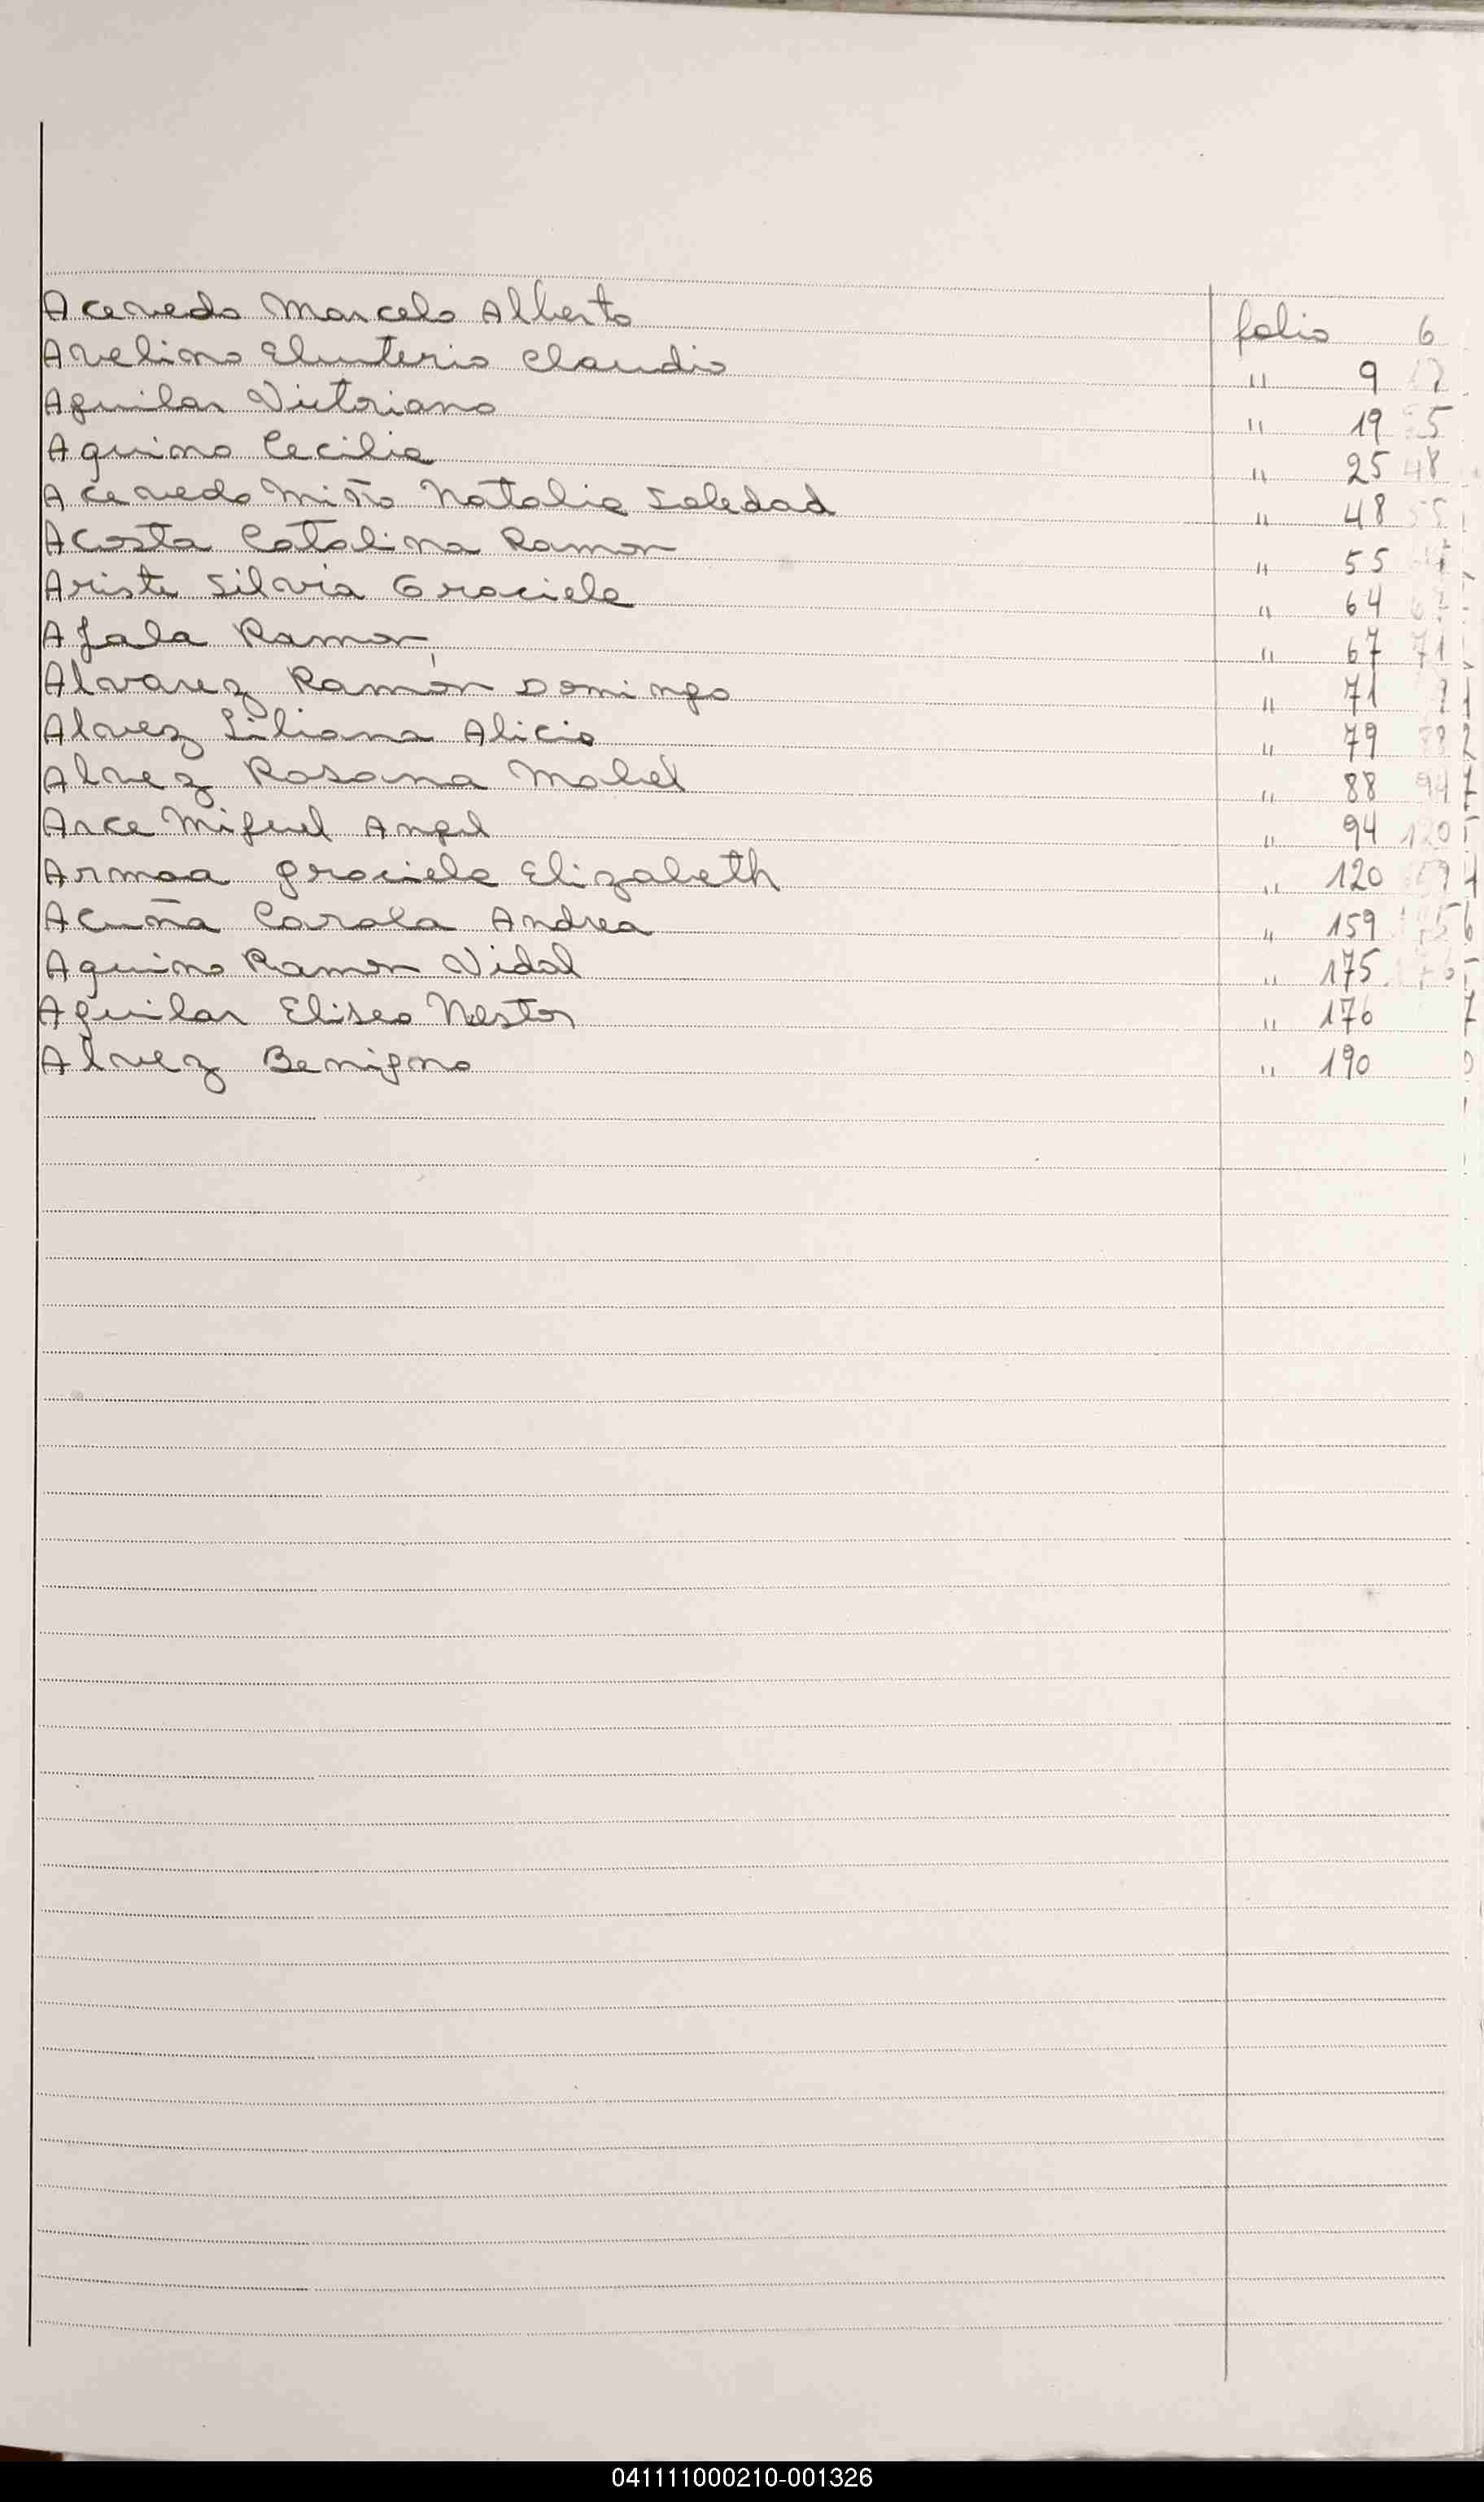 Acevedo Marcelo Alberto folio 6
Avelino Eleuterio Claudio " 9
Aguilar Victoriano " 19
Aquino Cecilia " 25
Acevedo Miño Natalia Soledad " 48
Acosta Catalina Ramon " 55
Aristi Silvia Graciela " 64
Ajala Ramon " 67
Alvarez Ramón Domingo " 71
Alvez Liliana Alicia " 79
Alvez Rosana Mabel " 88
Arce Miguel Angel " 94
Armoa Graciela Elizabeth " 120
Acuña Carola Andrea " 159
Aquino Ramon Vidal " 175
Aguilar Eliseo Nestor " 176
Alvez Benigno " 190
041111000210-001326